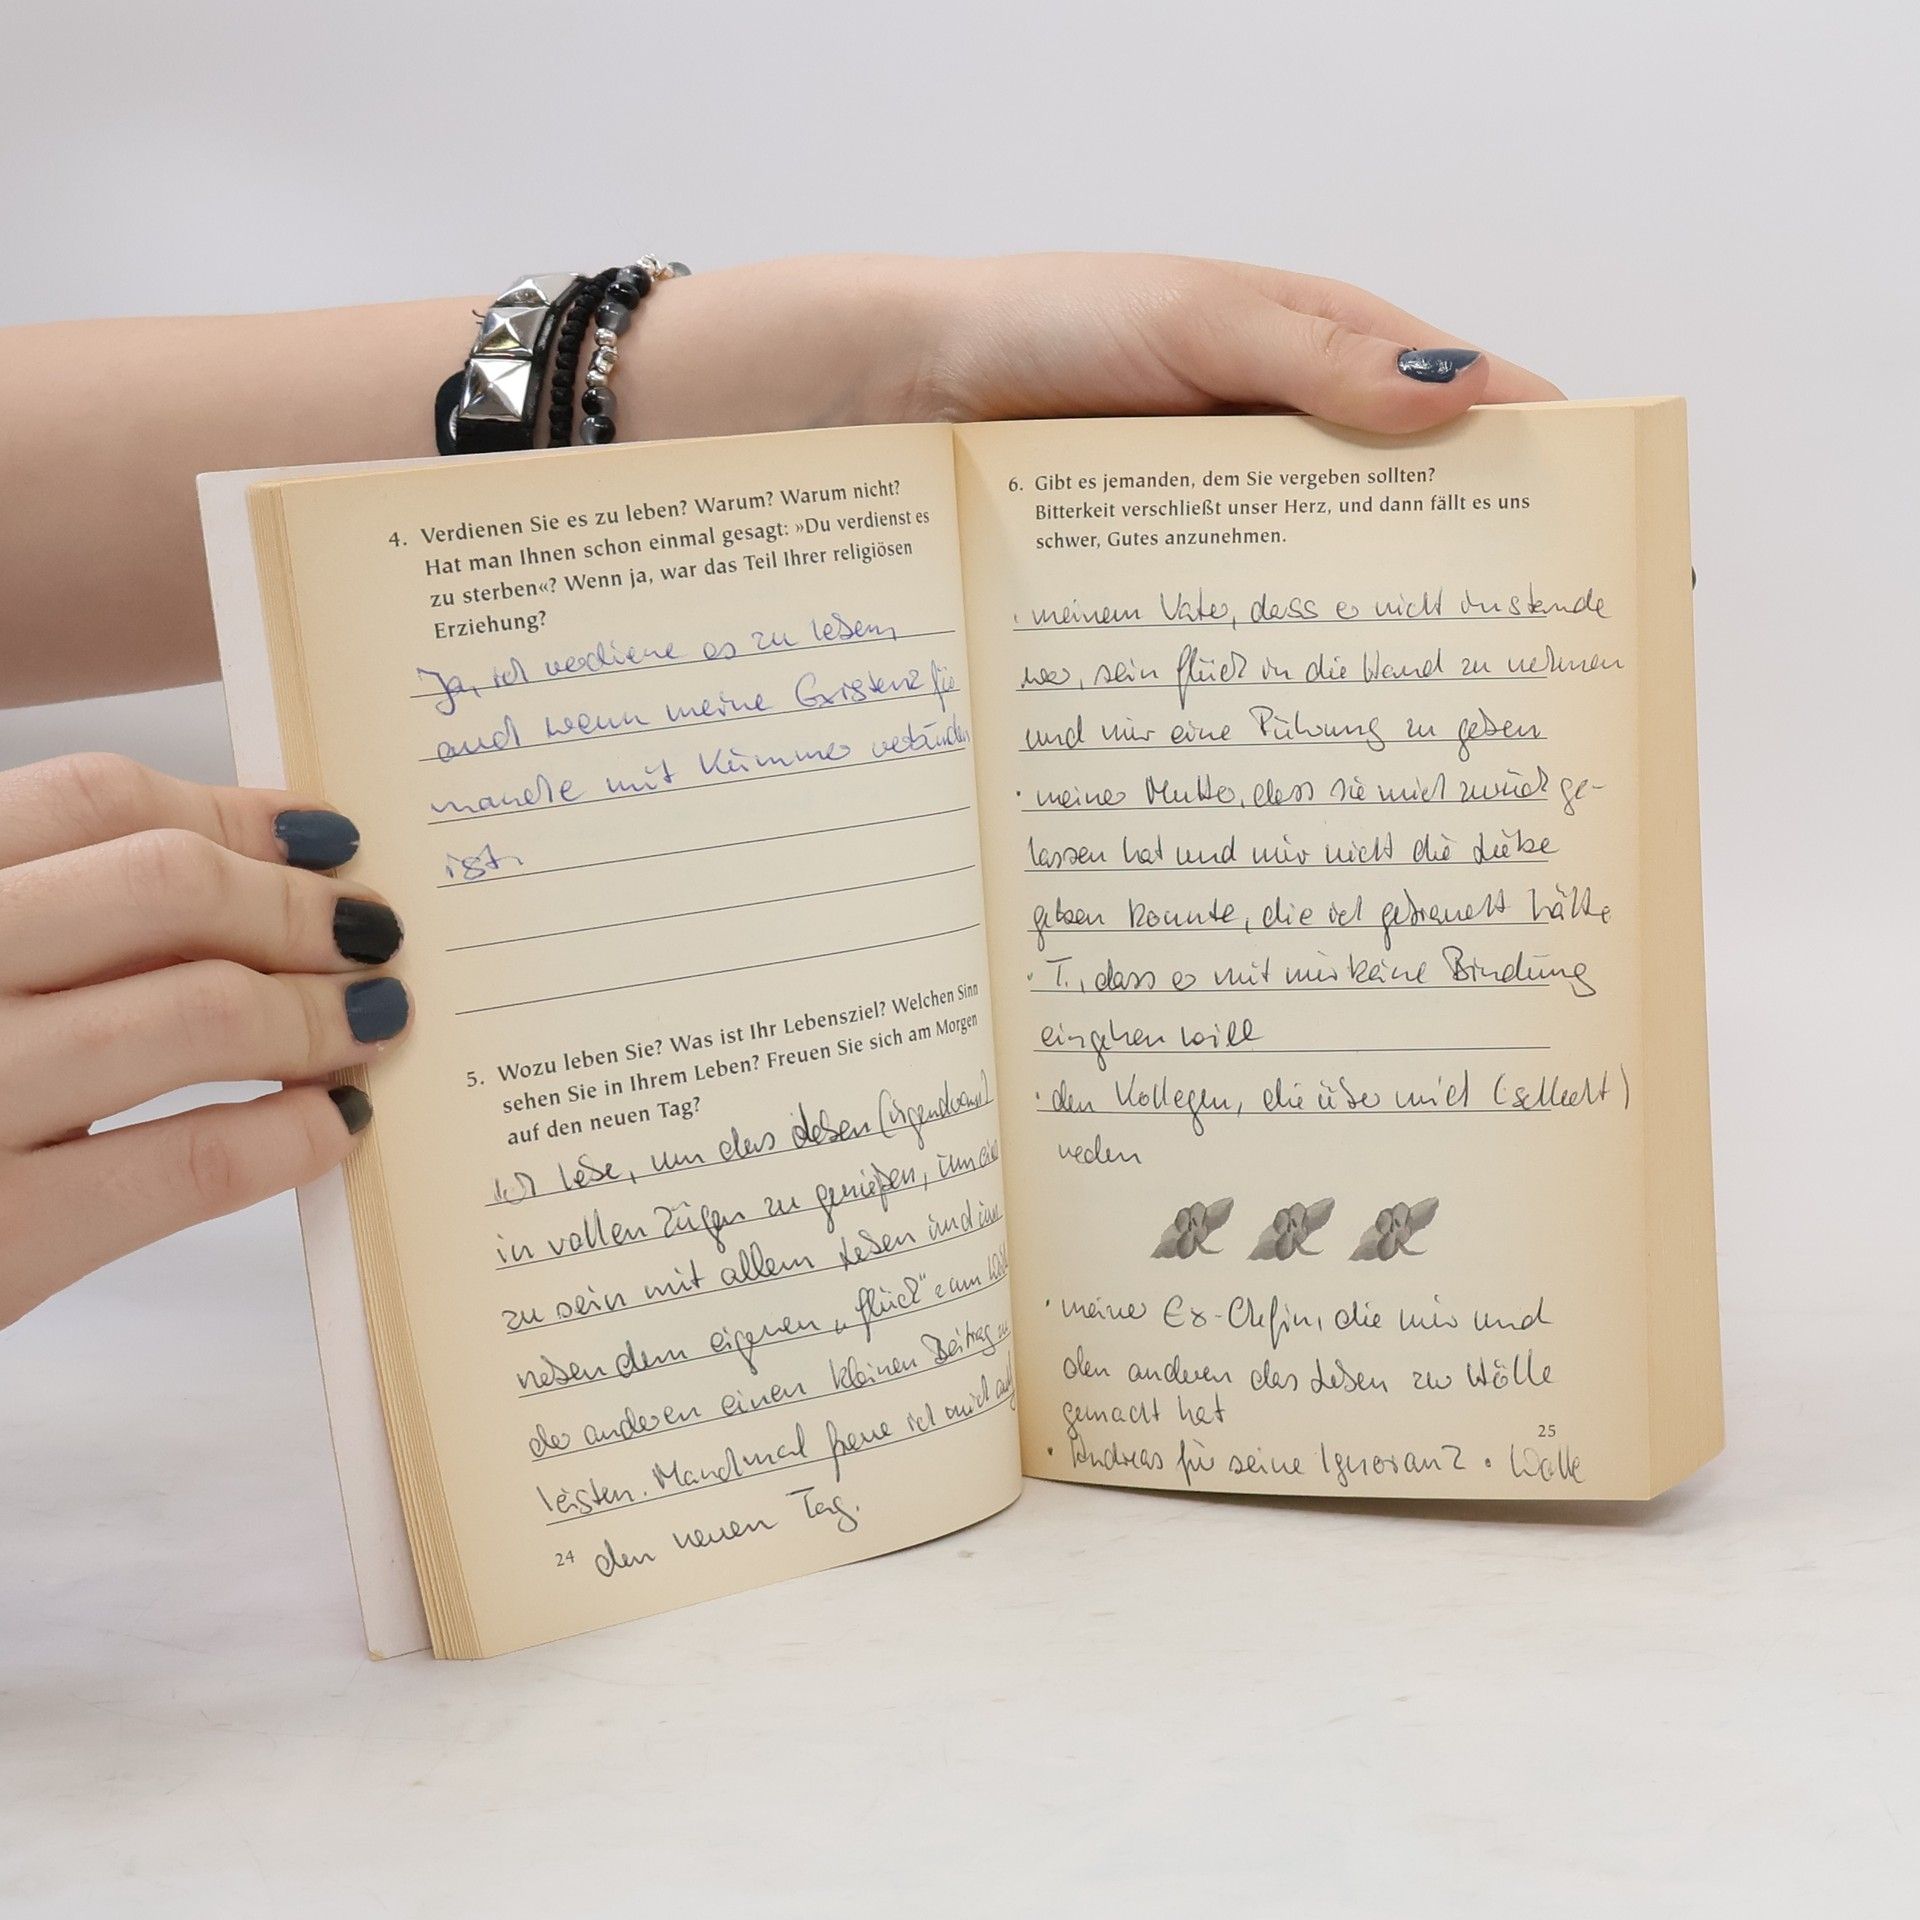 4. Verdienen Sie es zu leben? Warum? Warum nicht?
Hat man Ihnen schon einmal gesagt: »Du verdienst es
zu sterben«? Wenn ja, war das Teil Ihrer religiösen
Erziehung?
Ja, ich verdiene es zu leben,
auch wenn meine Existenz für
manche mit Kummer verbunden
ist.
5. Wozu leben Sie? Was ist Ihr Lebensziel? Welchen Sinn
sehen Sie in Ihrem Leben? Freuen Sie sich am Morgen
auf den neuen Tag?
Ich lebe, um das Leben (irgendwann)
in vollen Zügen zu genießen, um eins
zu sein mit allem Leben und um
neben dem eigenen „Glück" am Wohl
der anderen einen kleinen Beitrag zu
leisten. Manchmal freue ich mich auf
den neuen Tag.
24
6. Gibt es jemanden, dem Sie vergeben sollten?
Bitterkeit verschließt unser Herz, und dann fällt es uns
schwer, Gutes anzunehmen.
· meinem Vater, dass er nicht imstande
war, sein Glück in die Hand zu nehmen
und mir eine Führung zu geben
· meiner Mutter, dass sie mich zurück ge-
lassen hat und mir nicht die Liebe
geben konnte, die ich gebraucht hätte
· T., dass er mit mir keine Bindung
eingehen will
· den Kollegen, die über mich (schlecht)
reden
· meiner Ex-Chefin, die mir und
den anderen das Leben zur Hölle
gemacht hat
25
· Andreas für seine Ignoranz ·